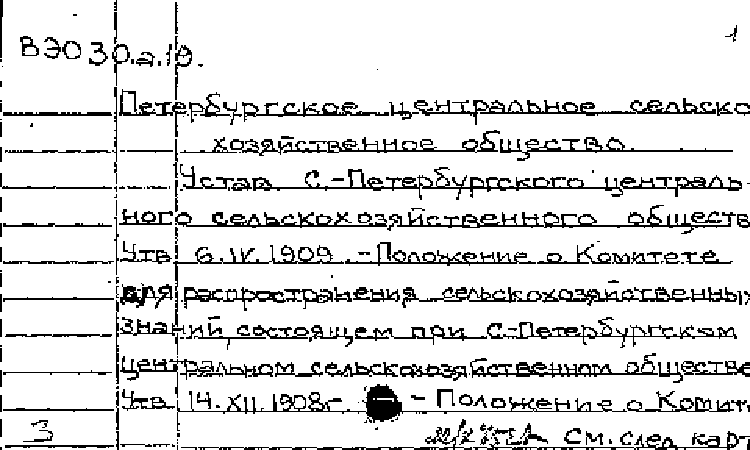 1
ВЭО 30.а.19.
Петербургское центральное сельско
хозяйственное общество.
Устав С.-Петербургского централь-
ного сельскохозяйственного обществ
Утв. 6.IV.1909. - Положение о Комитете
для распространения сельскохозяйственных
знаний, состоящем при С.-Петербургском
центральном сельскохозяйственном обществе
Утв. 14.XII.1908г. - Положение о Комит
3 См. след карт